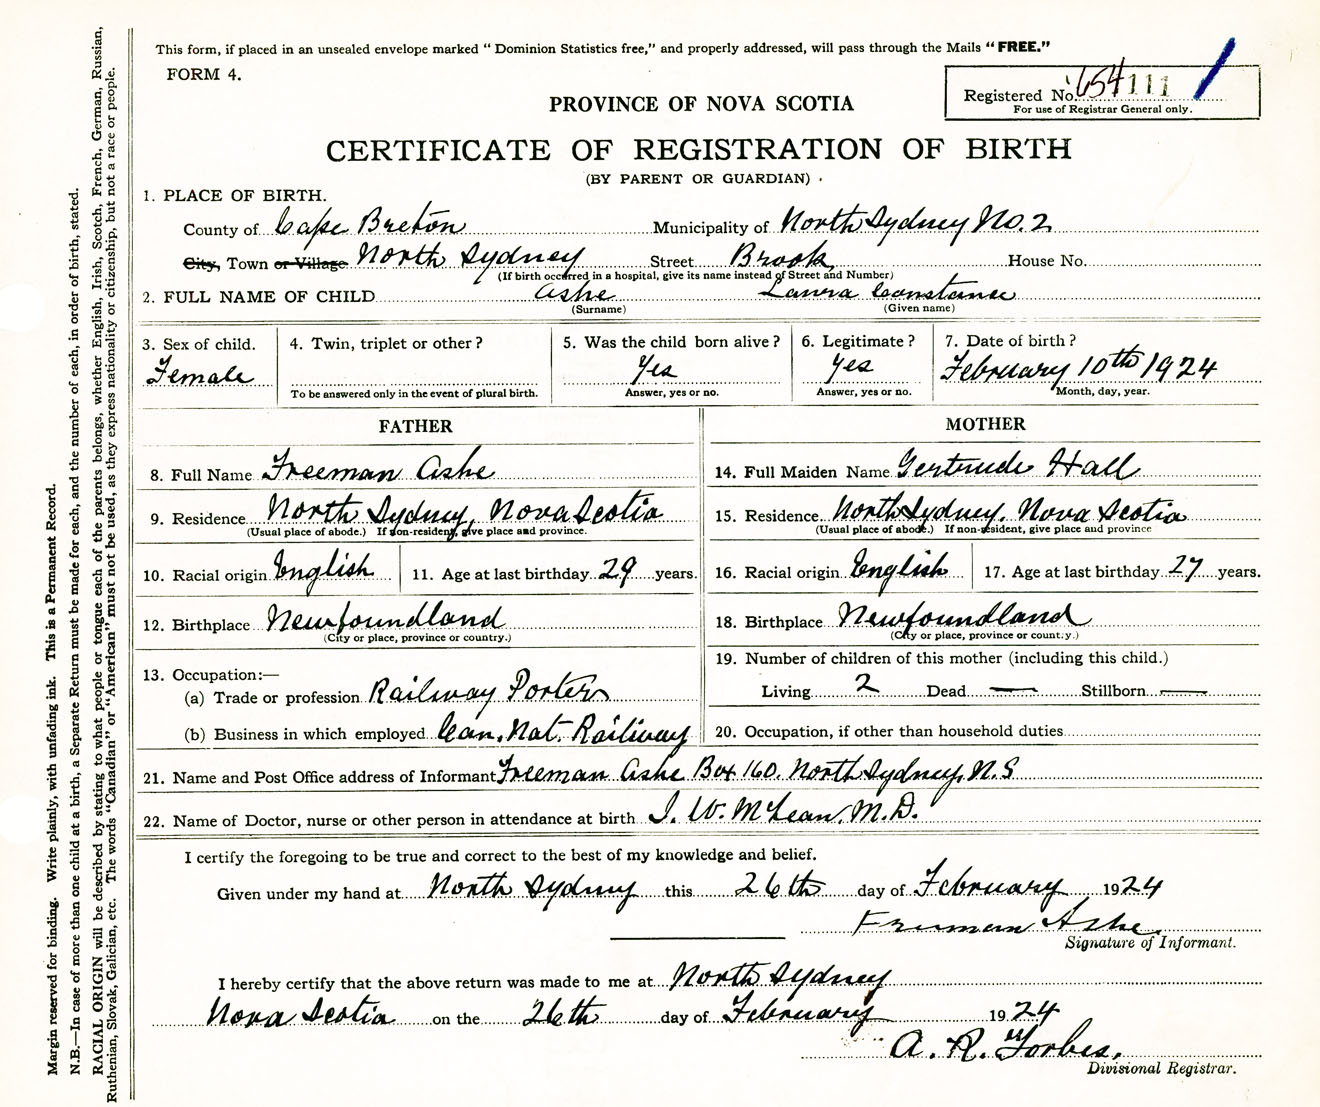 This form, if placed in an unsealed envelope marked "Dominion Statistics free," and properly addressed, will pass through the Mails "FREE."
FORM 4.
Registered No. 654111
For use of Registrar General only.
PROVINCE OF NOVA SCOTIA
CERTIFICATE OF REGISTRATION OF BIRTH
(BY PARENT OR GUARDIAN)
1. PLACE OF BIRTH.
County of Cape Breton Municipality of North Sydney No. 2
City, Town or Village North Sydney Street Brook House No.
(If birth occurred in a hospital, give its name instead of Street and Number)
2. FULL NAME OF CHILD Ashe Laura Constance
(Surname) (Given name)
3. Sex of child. Female
4. Twin, triplet or other?
To be answered only in the event of plural birth.
5. Was the child born alive? Yes
Answer, yes or no.
6. Legitimate? Yes
Answer, yes or no.
7. Date of birth? February 10th 1924
Month, day, year.
FATHER
8. Full Name Freeman Ashe
9. Residence North Sydney, Nova Scotia
(Usual place of abode.) If non-resident, give place and province.
10. Racial origin English 11. Age at last birthday 29 years.
12. Birthplace Newfoundland
(City or place, province or country.)
13. Occupation:—
(a) Trade or profession Railway Porter
(b) Business in which employed Can. Nat. Railway
MOTHER
14. Full Maiden Name Gertrude Hall
15. Residence North Sydney, Nova Scotia
(Usual place of abode.) If non-resident, give place and province
16. Racial origin English 17. Age at last birthday 27 years.
18. Birthplace Newfoundland
(City or place, province or country.)
19. Number of children of this mother (including this child.)
Living 2 Dead — Stillborn —
20. Occupation, if other than household duties
21. Name and Post Office address of Informant Freeman Ashe Box 160. North Sydney, N.S
22. Name of Doctor, nurse or other person in attendance at birth J. W. McLean. M.D.
I certify the foregoing to be true and correct to the best of my knowledge and belief.
Given under my hand at North Sydney this 26th day of February 1924
Freeman Ashe
Signature of Informant.
I hereby certify that the above return was made to me at North Sydney
Nova Scotia on the 26th day of February 1924
A. R. Forbes,
Divisional Registrar.
Margin reserved for binding. Write plainly, with unfading ink. This is a Permanent Record.
N.B.—In case of more than one child at a birth, a Separate Return must be made for each, and the number of each, in order of birth, stated.
RACIAL ORIGIN will be described by stating to what people or tongue each of the parents belongs, whether English, Irish, Scotch, French, German, Russian,
Ruthenian, Slovak, Galician, etc. The words "Canadian" or "American" must not be used, as they express nationality or citizenship, but not a race or people.